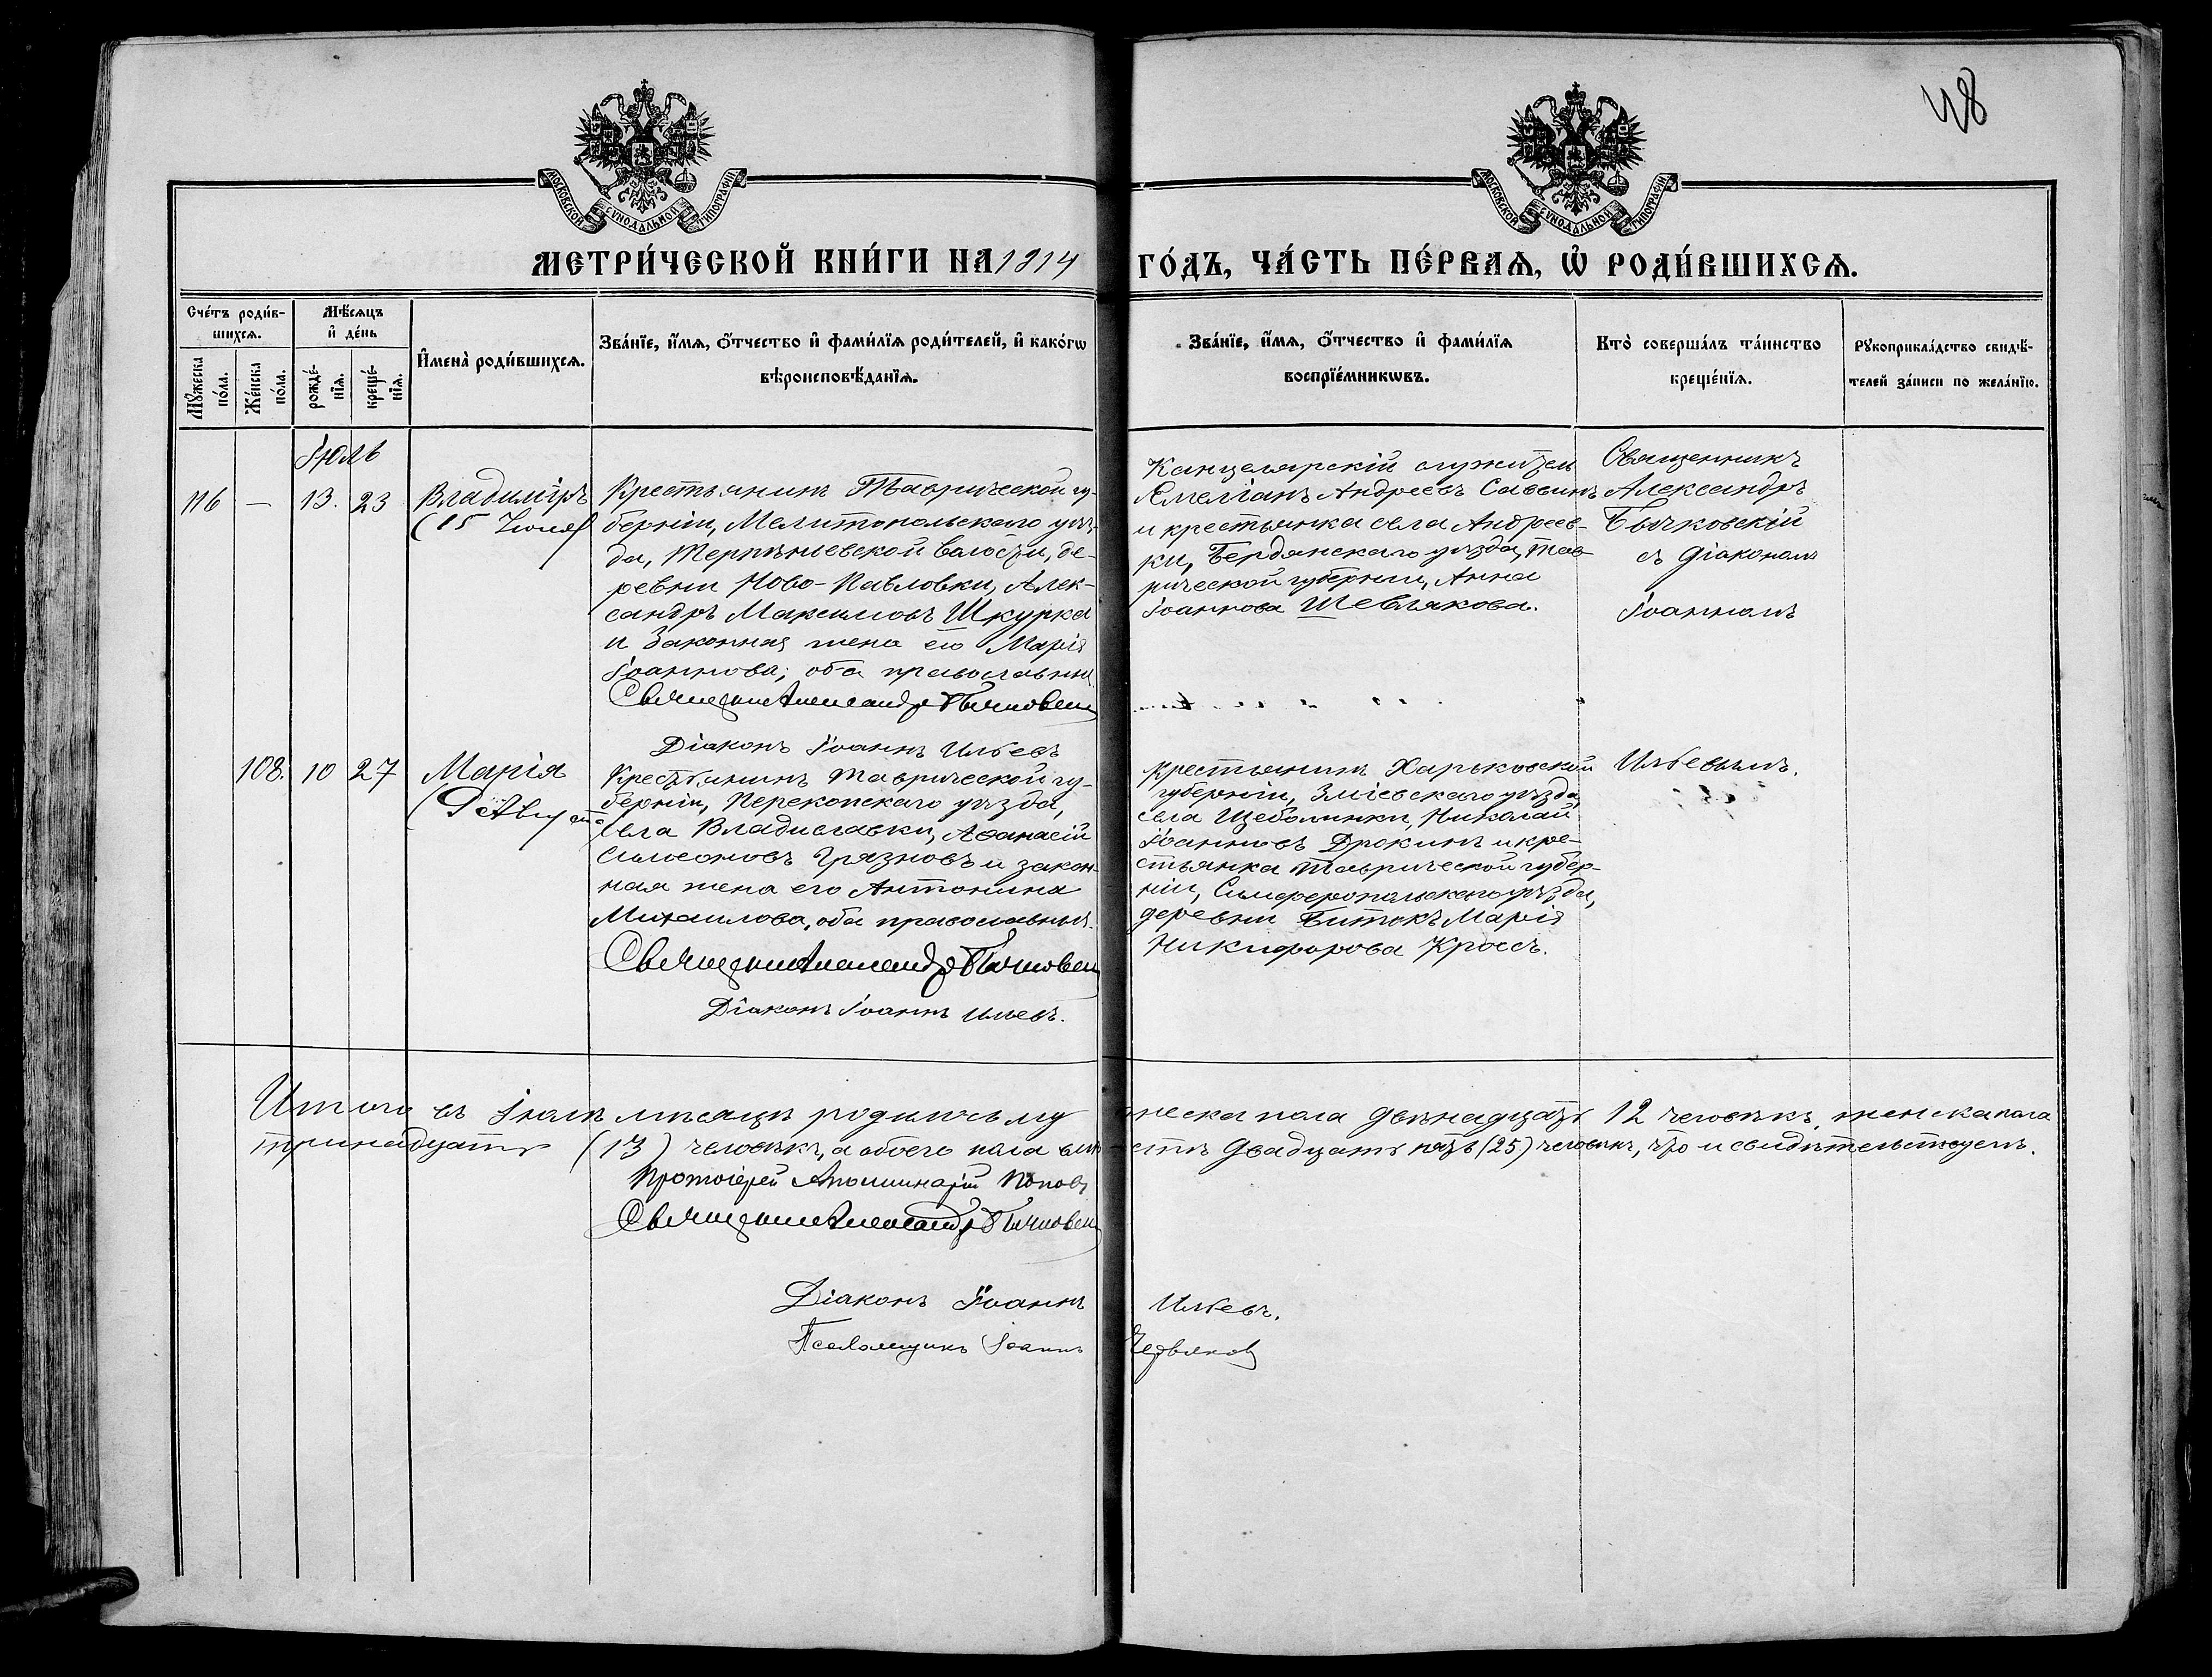 48
МОСКОВСКОЙ СѴНОДАЛЬНОЙ ТИПОГРАФІИ
МОСКОВСКОЙ СѴНОДАЛЬНОЙ ТИПОГРАФІИ
МЕТРИ́ЧЕСКОЙ КНИ́ГИ НА 1914 ГО́ДЪ, ЧА́СТЬ ПЕ́РВАѦ, Ѡ҆ РОДИ́ВШИХСѦ.
Сче́тъ роди́в-
шихсѧ.
Мꙋ́жеска
по́ла.
Же́нска
по́ла.
Мѣ́сѧцъ
и҆ де́нь
рожде́-
нїѧ.
креще́-
нїѧ.
И҆мена̀ роди́вшихсѧ.
Зва́нїе, и҆́мѧ, ѻ҆́тчество и҆ фами́лїѧ роди́телей, и҆ како́гѡ
вѣроисповѣ́данїѧ.
Зва́нїе, и҆́мѧ, ѻ҆́тчество и҆ фами́лїѧ
воспрїе́мникѡвъ.
Кто̀ соверша́лъ та́инство
креще́нїѧ.
Рꙋкоприкла́дство свидѣ́-
телей за́писи по жела́нїю.
Іюль
116 — 13. 23
Владиміръ
(15 Іюля)
Крестьянинъ Таврической гу-
берніи, Мелитопольскаго уѣз-
да, Терпѣньевской волости, де-
ревни Ново-Павловки, Алек-
сандръ Максимовъ Шкурка
и законная жена его Марія
Іоаннова; оба православны.
Священник Александр Бычковскій
Діаконъ Іоаннъ Ильевъ
Канцелярскій служитель
Емеліанъ Андреевъ Саввинъ
и крестьянка села Андреев-
ки, Бердянскаго уѣзда, Тав-
рической губерніи, Анна
Іоаннова Шевлякова.
Священникъ
Александръ
Бычковскій
съ діакономъ
Іоанномъ
108. 10 27
Марія
Крестьянинъ Таврической гу-
берніи, Перекопскаго уѣзда,
села Владиславки, Аѳанасій
Симеоновъ Грязновъ и закон-
ная жена его Антонина
Михаилова, оба православны.
Священник Александр Бычковскій
Діаконъ Іоаннъ Ильевъ.
Крестьянинъ Харьковской
губерніи, Зміевскаго уѣзда,
села Щеболинки, Николай
Іоанновъ Дрокинъ и кре-
стьянка Таврической губер-
ніи, Симферопольскаго уѣзда,
деревни Битокъ Марія
Никифорова Кроссъ.
Ильевымъ.
Итого въ Іюлѣ мѣсяцѣ родилось мужеска пола двѣнадцать 12 человѣкъ, женска пола
тринадцать (13) человѣкъ, а обоего пола вмѣстѣ двадцать пять (25) человѣкъ, что и свидѣтельствуемъ.
Протоіерей Аполлинарій Поповъ
Священник Александр Бычковскій
Діаконъ Іоаннъ Ильевъ.
Псаломщикъ Іоаннъ Червяковъ